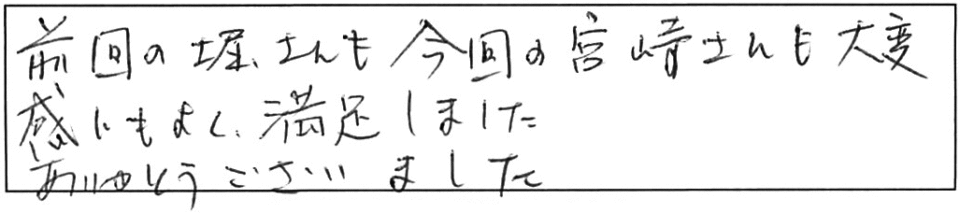 前回の堀さんも今回の宮崎さんも大変
感じもよく、満足しました
ありがとうございました